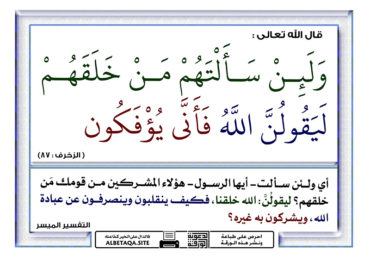 قال الله تعالى :
وَلَئِـنْ سَـأَلْتَهُمْ مَـنْ خَلَقَهُـمْ
لَيَقُولُنَّ اللَّهُ فَأَنَّى يُؤْفَكُون
( الزخرف : ٨٧ )
أي ولـئن سـألت - أيها الرسـول - هؤلاء المشـركين مـن قومك مَن
خلقهم؟ ليقولُنَّ: الله خلقنا، فكيف ينقلبون وينصرفون عن عبادة
الله، ويشركون به غيره؟
التفسير الميسر
احرص على طباعة
ونشر هذه الورقة
فالدال على الخير كفاعله
ALBETAQA.SITE